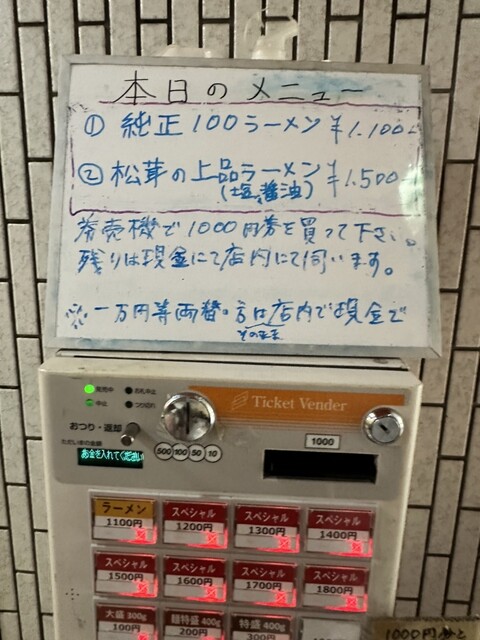 本日のメニュー
① 純正100ラーメン ¥1.100
② 松茸の上品ラーメン ¥1.500
(塩,醤油)
券売機で1000円券を買って下さい。
残りは現金にて店内にて伺います。
※一万円等両替の方は店内で現金で
そのまま
発売中 お札中止
中止 つり切れ
Ticket Vender
おつり・返却
ただいまの金額
お金を入れてください
500 100 50 10
1000
ラーメン スペシャル スペシャル スペシャル
1100円 1200円 1300円 1400円
スペシャル スペシャル スペシャル スペシャル
1500円 1600円 1700円 1800円
大盛 300g 麺特盛 400g 特盛 400g
100円 200円 300円
1000円